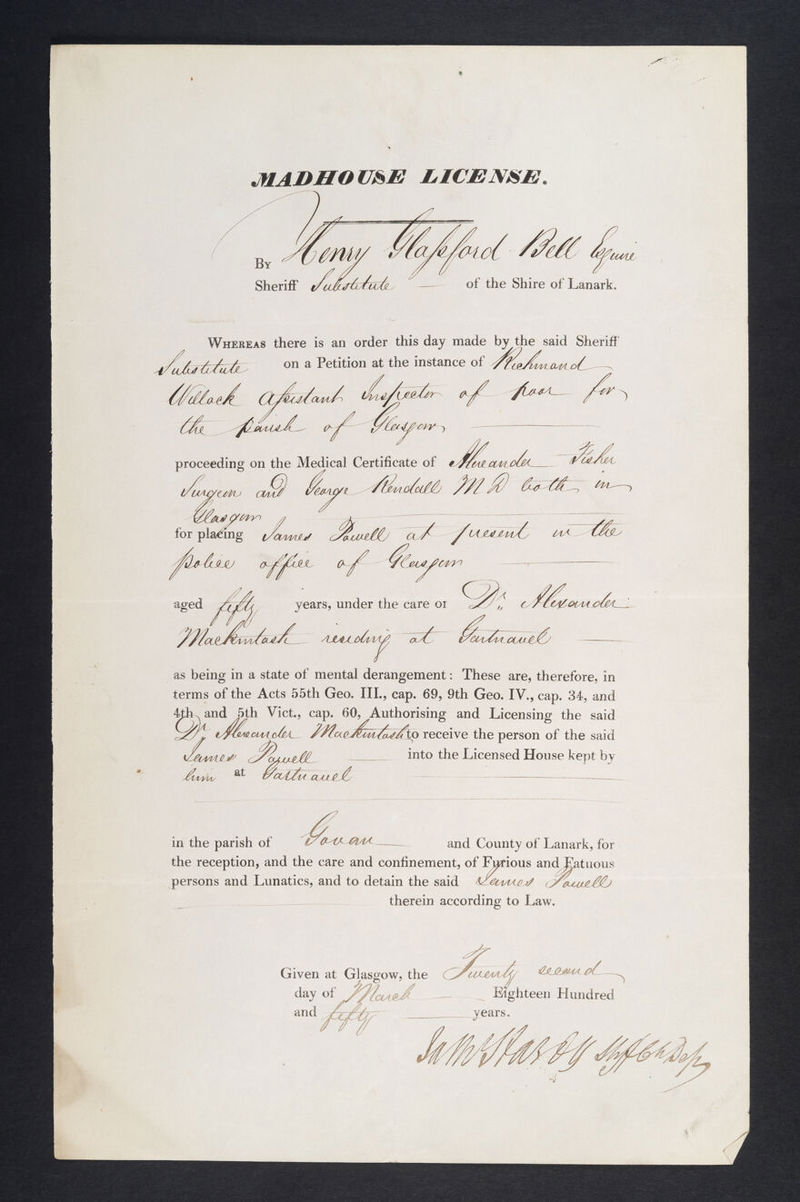 MADHOUSE LICENSE.
By Henry Glassford Bell Esquire
Sheriff Substitute of the Shire of Lanark.
Whereas there is an order this day made by the said Sheriff
Substitute on a Petition at the instance of Richmond
Willock Assistant Inspector of poor for
the parish of Glasgow,
proceeding on the Medical Certificate of Alexander Fisher
Surgeon and George Rendall M D both in
Glasgow
for placing James Powell at present in the
police office of Glasgow
aged fifty years, under the care of Dr. Alexander
Mackintosh residing at Gartnavel
as being in a state of mental derangement: These are, therefore, in
terms of the Acts 55th Geo. III., cap. 69, 9th Geo. IV., cap. 34, and
4th and 5th Vict., cap. 60, Authorising and Licensing the said
Dr. Alexander Mackintosh to receive the person of the said
James Powell into the Licensed House kept by
him at Gartnavel
in the parish of Govan and County of Lanark, for
the reception, and the care and confinement, of Furious and Fatuous
persons and Lunatics, and to detain the said James Powell
therein according to Law.
Given at Glasgow, the Twenty second
day of March Eighteen Hundred
and fifty years.